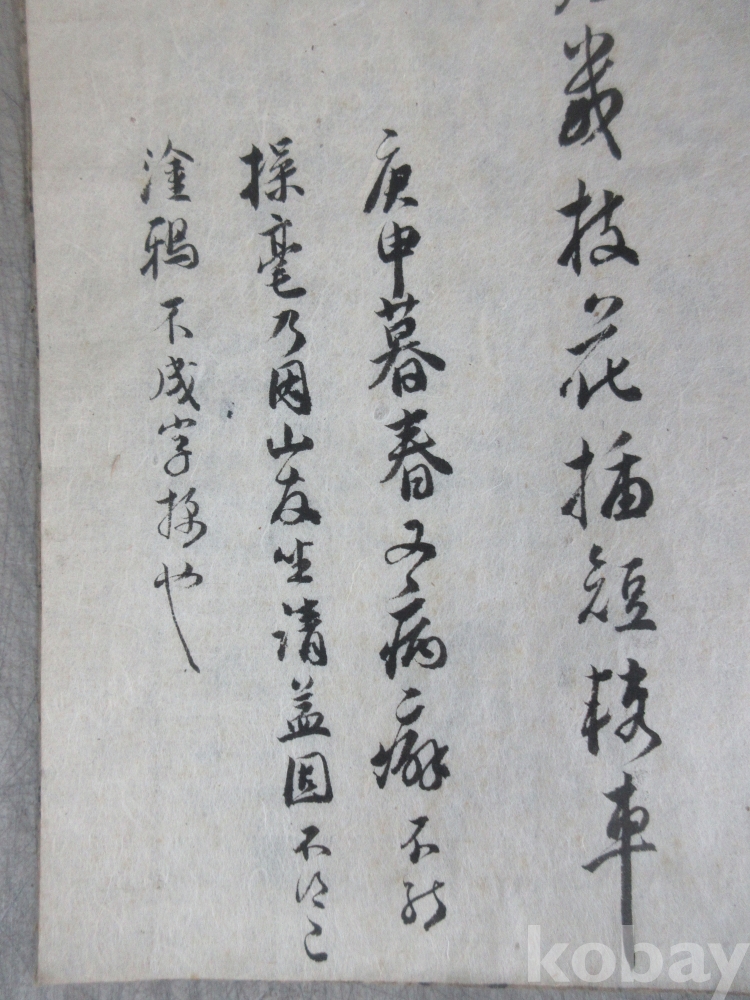 幾枝花插短轅車
庚申暮春又病癖不能
操毫乃因山友坐請益固不得已
塗鴉不成字樣也
kobay